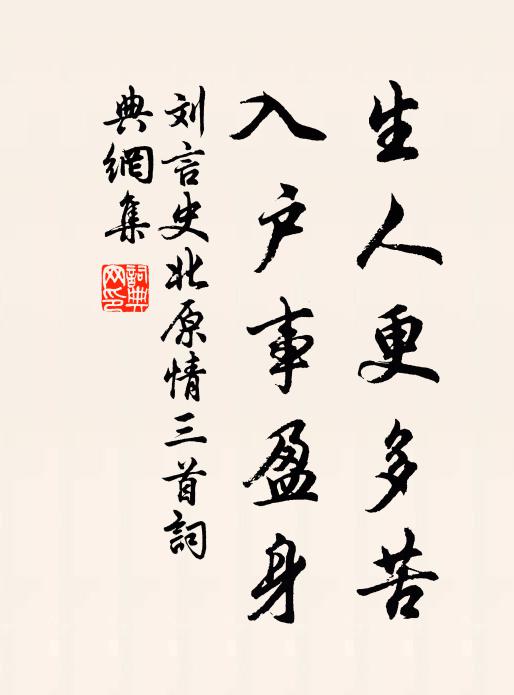 生人更多苦
入户事盈身
刘言史北原情三首词
典網集
詞典
网印